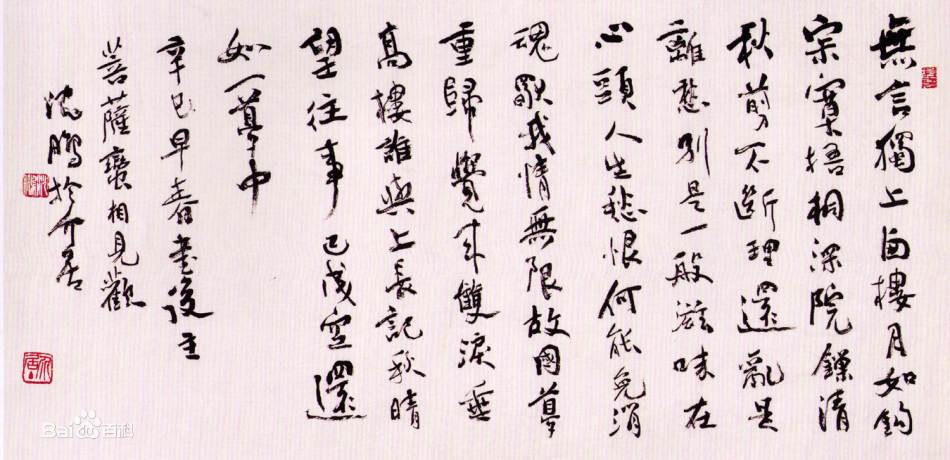 無言獨上西樓月如鉤
寂寞梧桐深院鎖清
秋剪不斷理還亂是
離愁別是一般滋味在
心頭人生愁恨何能免消
魂獨我情無限故國夢
重歸覺來雙淚垂
高樓誰與上長記秋晴
望往事已成空還
如一夢中
辛巳早春書後主
菩薩蠻相見歡
沈鵬於介居
Bai百科